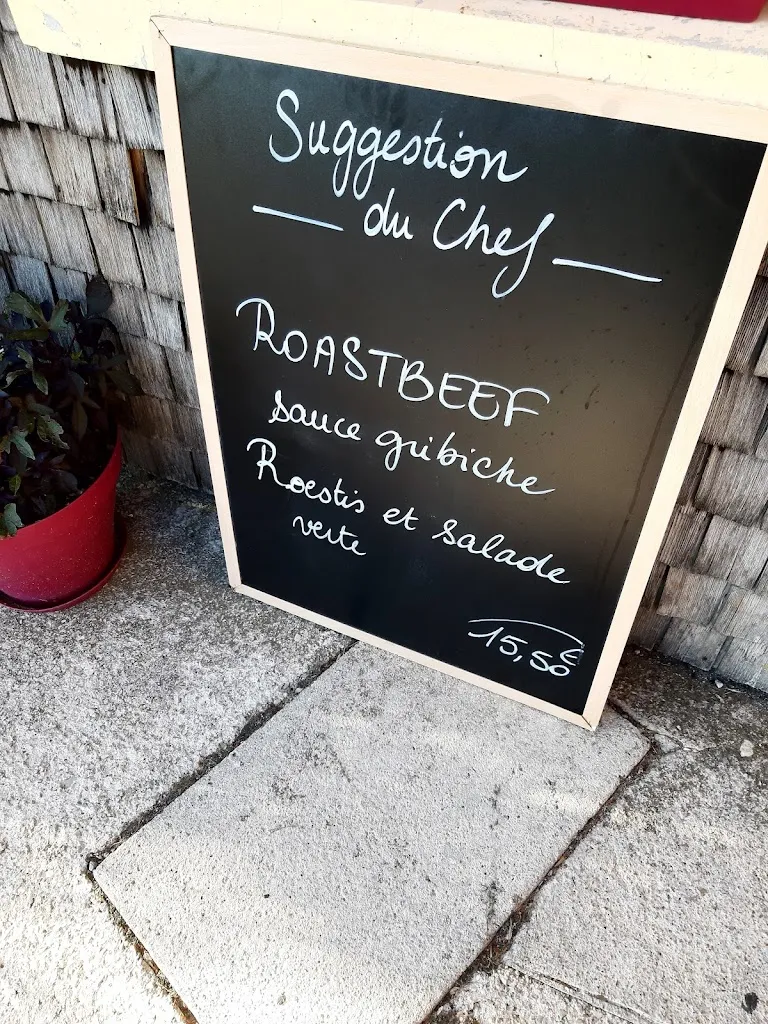 Suggestion
du Chef
ROASTBEEF
sauce gribiche
Roestis et salade
verte
15,50€